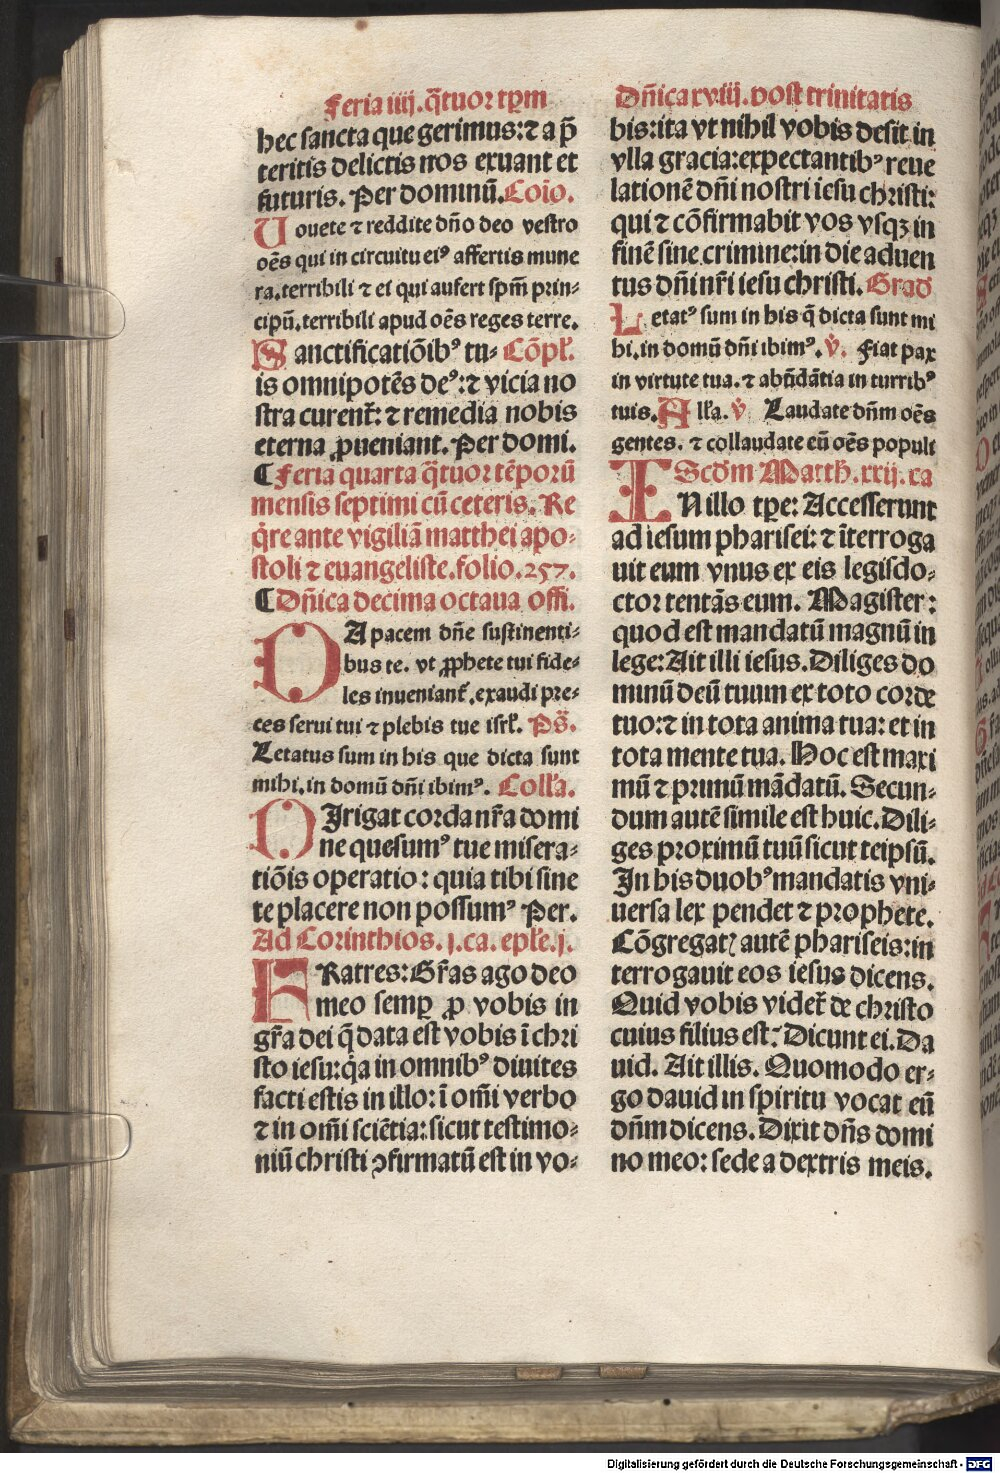 Feria iiij. q̄tuor tp̄m
hec sancta que gerimus: ⁊ a p̄
teritis delictis nos exuant et
futuris. Per dominū. Coīo.
Uouete ⁊ reddite dn̄o deo vestro
oēs qui in circuitu eiꝰ affertis mune
ra. terribili ⁊ ei qui aufert spm̄ prin-
cipū. terribili apud oēs reges terre.
Sanctificatiōibꝰ tu- Cōpl̄.
is omnipotēs deꝰ: ⁊ vicia no
stra curent̄: ⁊ remedia nobis
eterna ꝓueniant. Per domi.
¶ Feria quarta q̄tuor tēporū
mensis septimi cū ceteris. Re
q̇re ante vigiliā matthei apo-
stoli ⁊ euangeliste. folio. 257.
¶ Dn̄ica decima octaua offi.
DA pacem dn̄e sustinenti-
bus te. vt ꝓphete tui fide-
les inueniant̄. exaudi pre-
ces serui tui ⁊ plebis tue isrl̄. Ps̄.
Letatus sum in his que dicta sunt
mihi. in domū dn̄i ibimꝰ. Coll̄a.
DIrigat corda nr̄a domi
ne quesumꝰ tue misera-
tiōis operatio: quia tibi sine
te placere non possumꝰ Per.
Ad Corinthios. j. ca. epl̄e. j.
FRatres: Gr̄as ago deo
meo semꝑ ꝓ vobis in
gr̄a dei q̄ data est vobis ī chri
sto iesu: q̇a in omnibꝰ diuites
facti estis in illo: ī om̄i verbo
⁊ in om̄i sciētia: sicut testimo-
niū christi ꝯfirmatū est in vo-
Dn̄ica xviij. post trinitatis
bis: ita vt nihil vobis desit in
vlla gracia: expectantibꝰ reue
lationē dn̄i nostri iesu christi:
qui ⁊ cōfirmabit vos vsqꝫ in
finē sine crimine: in die aduen
tus dn̄i nr̄i iesu christi. Grad̄
Letatꝰ sum in his q̄ dicta sunt mi
hi. in domū dn̄i ibimꝰ. v̇. Fiat pax
in virtute tua. ⁊ abūdātia in turribꝰ
tuis. All̄a. v̇ Laudate dn̄m oēs
gentes. ⁊ collaudate eū oēs populi
Scd̄m Matth. xxij. ca
IN illo tp̄e: Accesserunt
ad iesum pharisei: ⁊ īterroga
uit eum vnus ex eis legisdo-
ctor tentās eum. Magister:
quod est mandatū magnū in
lege: Ait illi iesus. Diliges do
minū deū tuum ex toto corde
tuo: ⁊ in tota anima tua: et in
tota mente tua. Hoc est maxi
mū ⁊ primū mādatū. Secun-
dum autē simile est huic. Dili-
ges proximū tuū sicut teipsū.
In his duobꝰ mandatis vni-
uersa lex pendet ⁊ prophete.
Cōgregatꝭ autē phariseis: in
terrogauit eos iesus dicens.
Quid vobis videt̄ de christo
cuius filius est: Dicunt ei. Da
uid. Ait illis. Quomodo er-
go dauid in spiritu vocat eū
dn̄m dicens. Dixit dn̄s domi
no meo: sede a dextris meis.
Digitalisierung gefördert durch die Deutsche Forschungsgemeinschaft - DFG